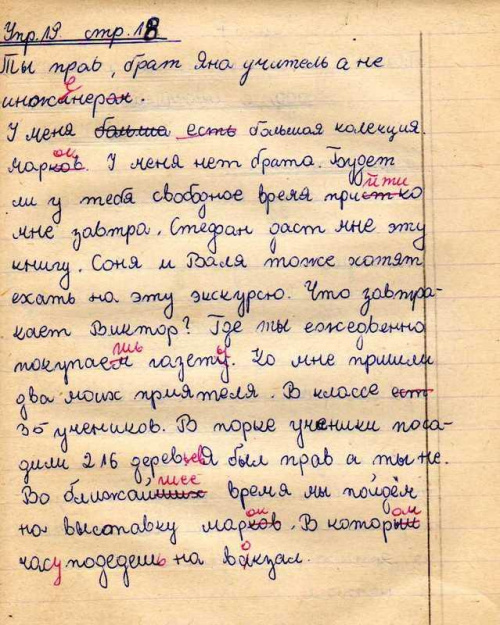 Упр. 19. стр. 18
Ты прав, брат Яна учитель а не
иножинерах.
е
У меня бальша есть большая колекция
марков. У меня нет брата. Будет
ок
ли у тебя свободное время пристко
йти
мне завтра. Стефан даст мне эту
книгу. Соня и Валя тоже хотят
ехать на эту экскурсю. Что завтра-
кает Виктор? Где ты ежедвенно
покупаем газету. Ко мне пришли
шь ы
два моих приятеля. В классе ест
35 учеников. В порке ученики поса-
дили 216 деревьев Я был прав а ты не.
Во ближайших время мы пойдём
шее
на выставку марков. В который
ок ом
часу подедешь на вакзал.
о